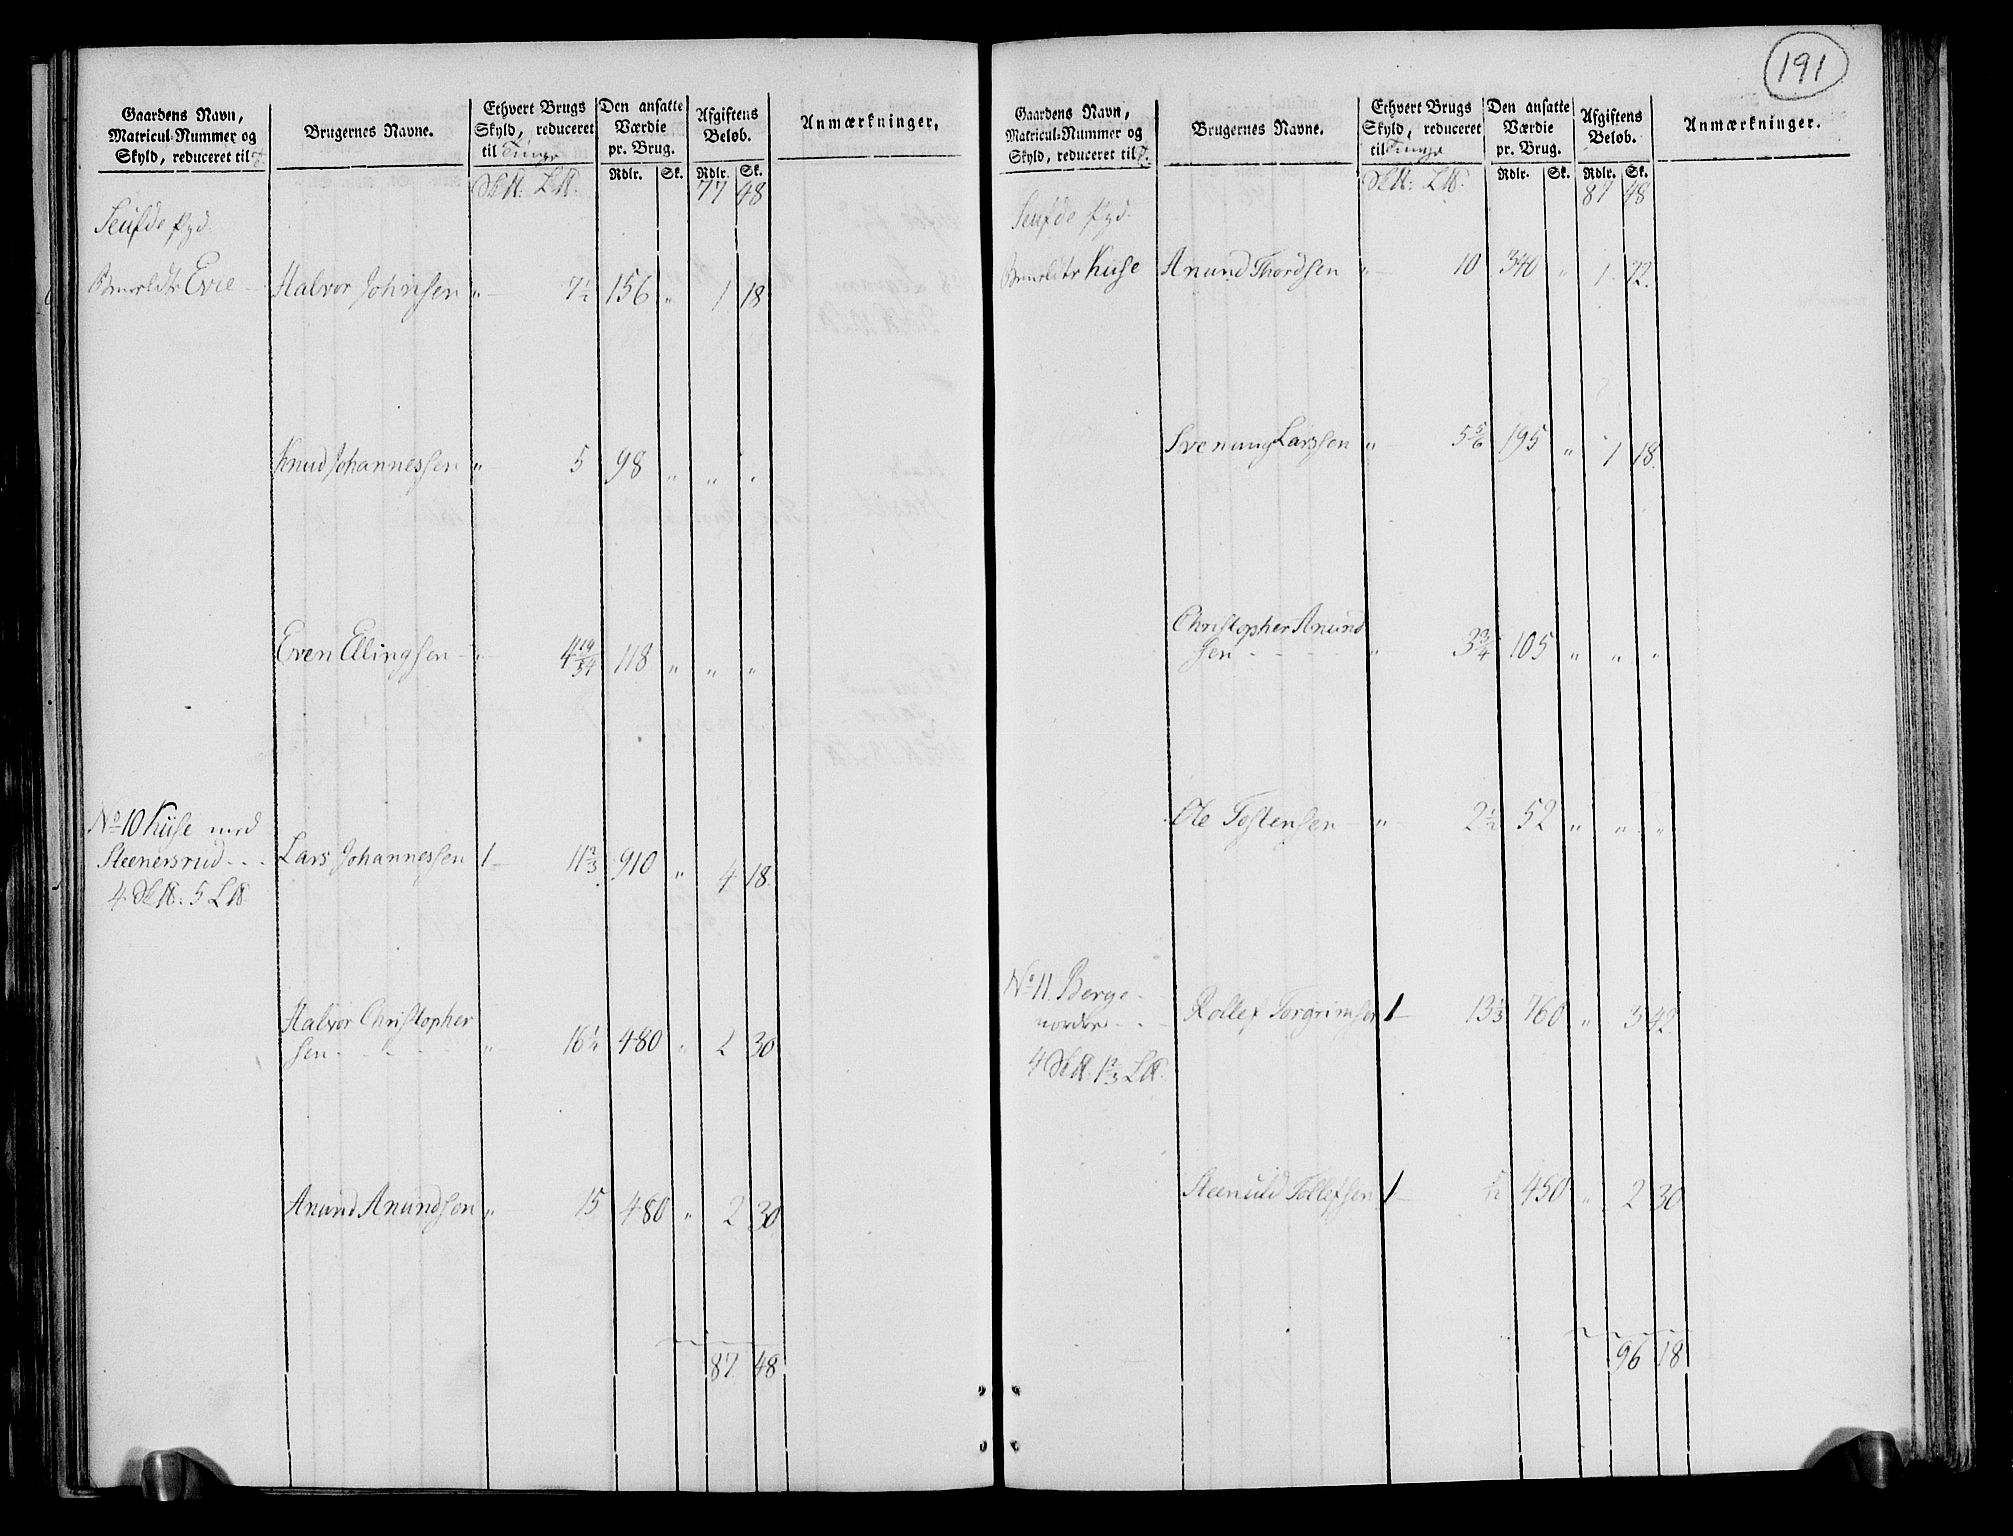 191
Gaardens Navn,
Matricul-Nummer og
Skyld, reduceret til T.
Brugernes Navne.
Ethvert Brugs
Skyld, reduceret
til Tunge
Den ansatte
Værdie
pr. Brug.
Afgiftens
Beløb.
Anmærkninger.
Rdlr. Sk. Rdlr. Sk.
Sk℔: L℔. 77 48
Seufde
Evie Halvor Johnsen " 7½ 156 " 1 18
Knud Johannessen " 5 98 " " "
Even Ellingsen " 4 19/34 118 " " "
No 10 Kuse med
Steenersrud Lars Johannessen 1 11⅔ 910 " 4 18.
4 Sk℔. 5 L℔
Halvor Christopher
sen " 16¼ 480 " 2 30
Anund Anundsen " 15 480 " 2 30
87 48
Gaardens Navn,
Matricul-Nummer og
Skyld, reduceret til T.
Brugernes Navne.
Ethvert Brugs
Skyld, reduceret
til Tunge
Den ansatte
Værdie
pr. Brug.
Afgiftens
Beløb.
Anmærkninger.
Rdlr. Sk. Rdlr. Sk.
Sk℔: L℔. 87 48
Seufde
Kuse Anund Thordsen " 10 340 " 1 72.
Svenung Larssen " 5⅚ 195 " 1 18.
Christopher Anund
sen " 3¾ 105 " " "
Ole Tostensen " 2½ 52 " " "
No 11. Berge
nordre Rollef Torgrimsen 1 13⅓ 760 " 3 42
4 Sk℔. 1⅔ L℔.
Steenuld Tollefsen 1 450 " 2 30
96 18